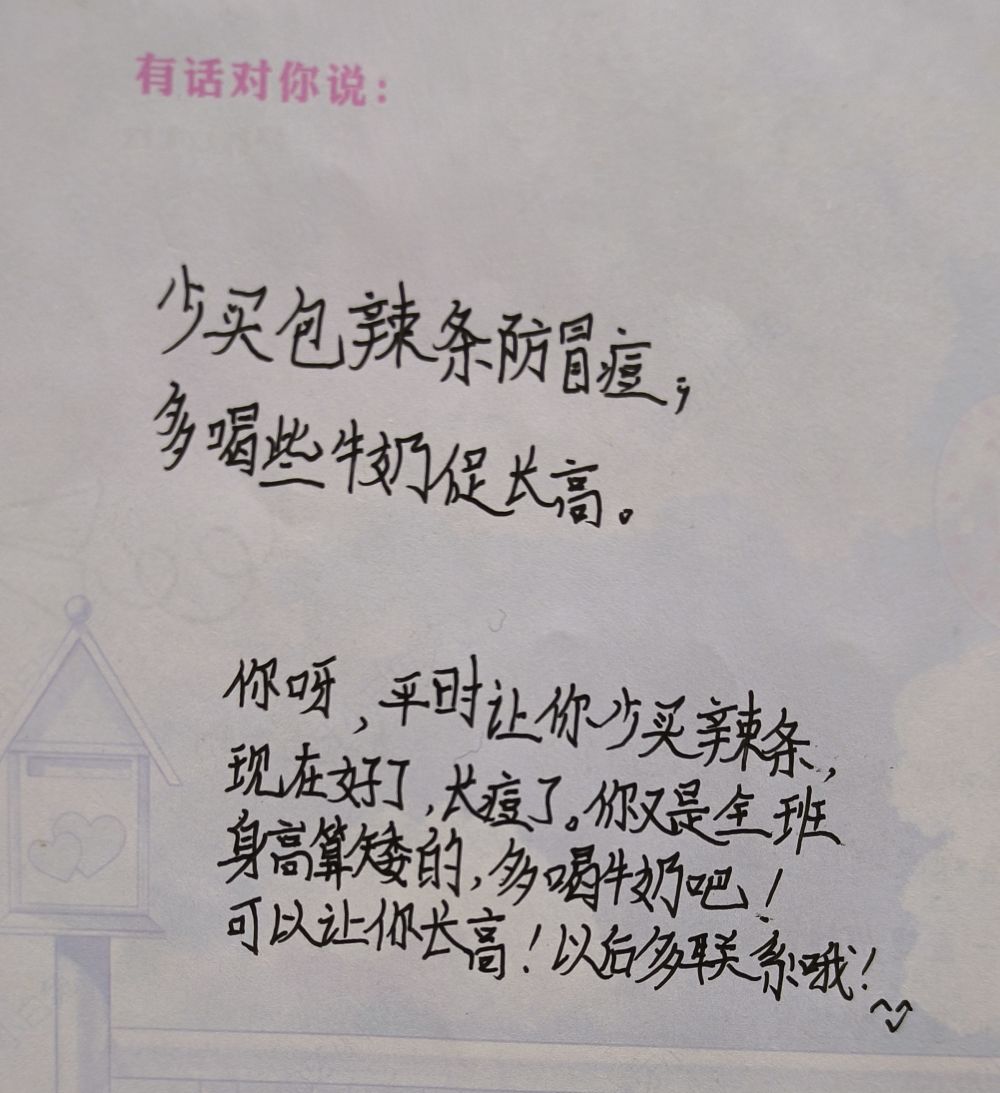 有话对你说：
少买包辣条防冒痘；
多喝些牛奶促长高。
你呀，平时让你少买辣条，
现在好了，长痘了。你又是全班
身高算矮的，多喝牛奶吧！
可以让你长高！以后多联系哦！